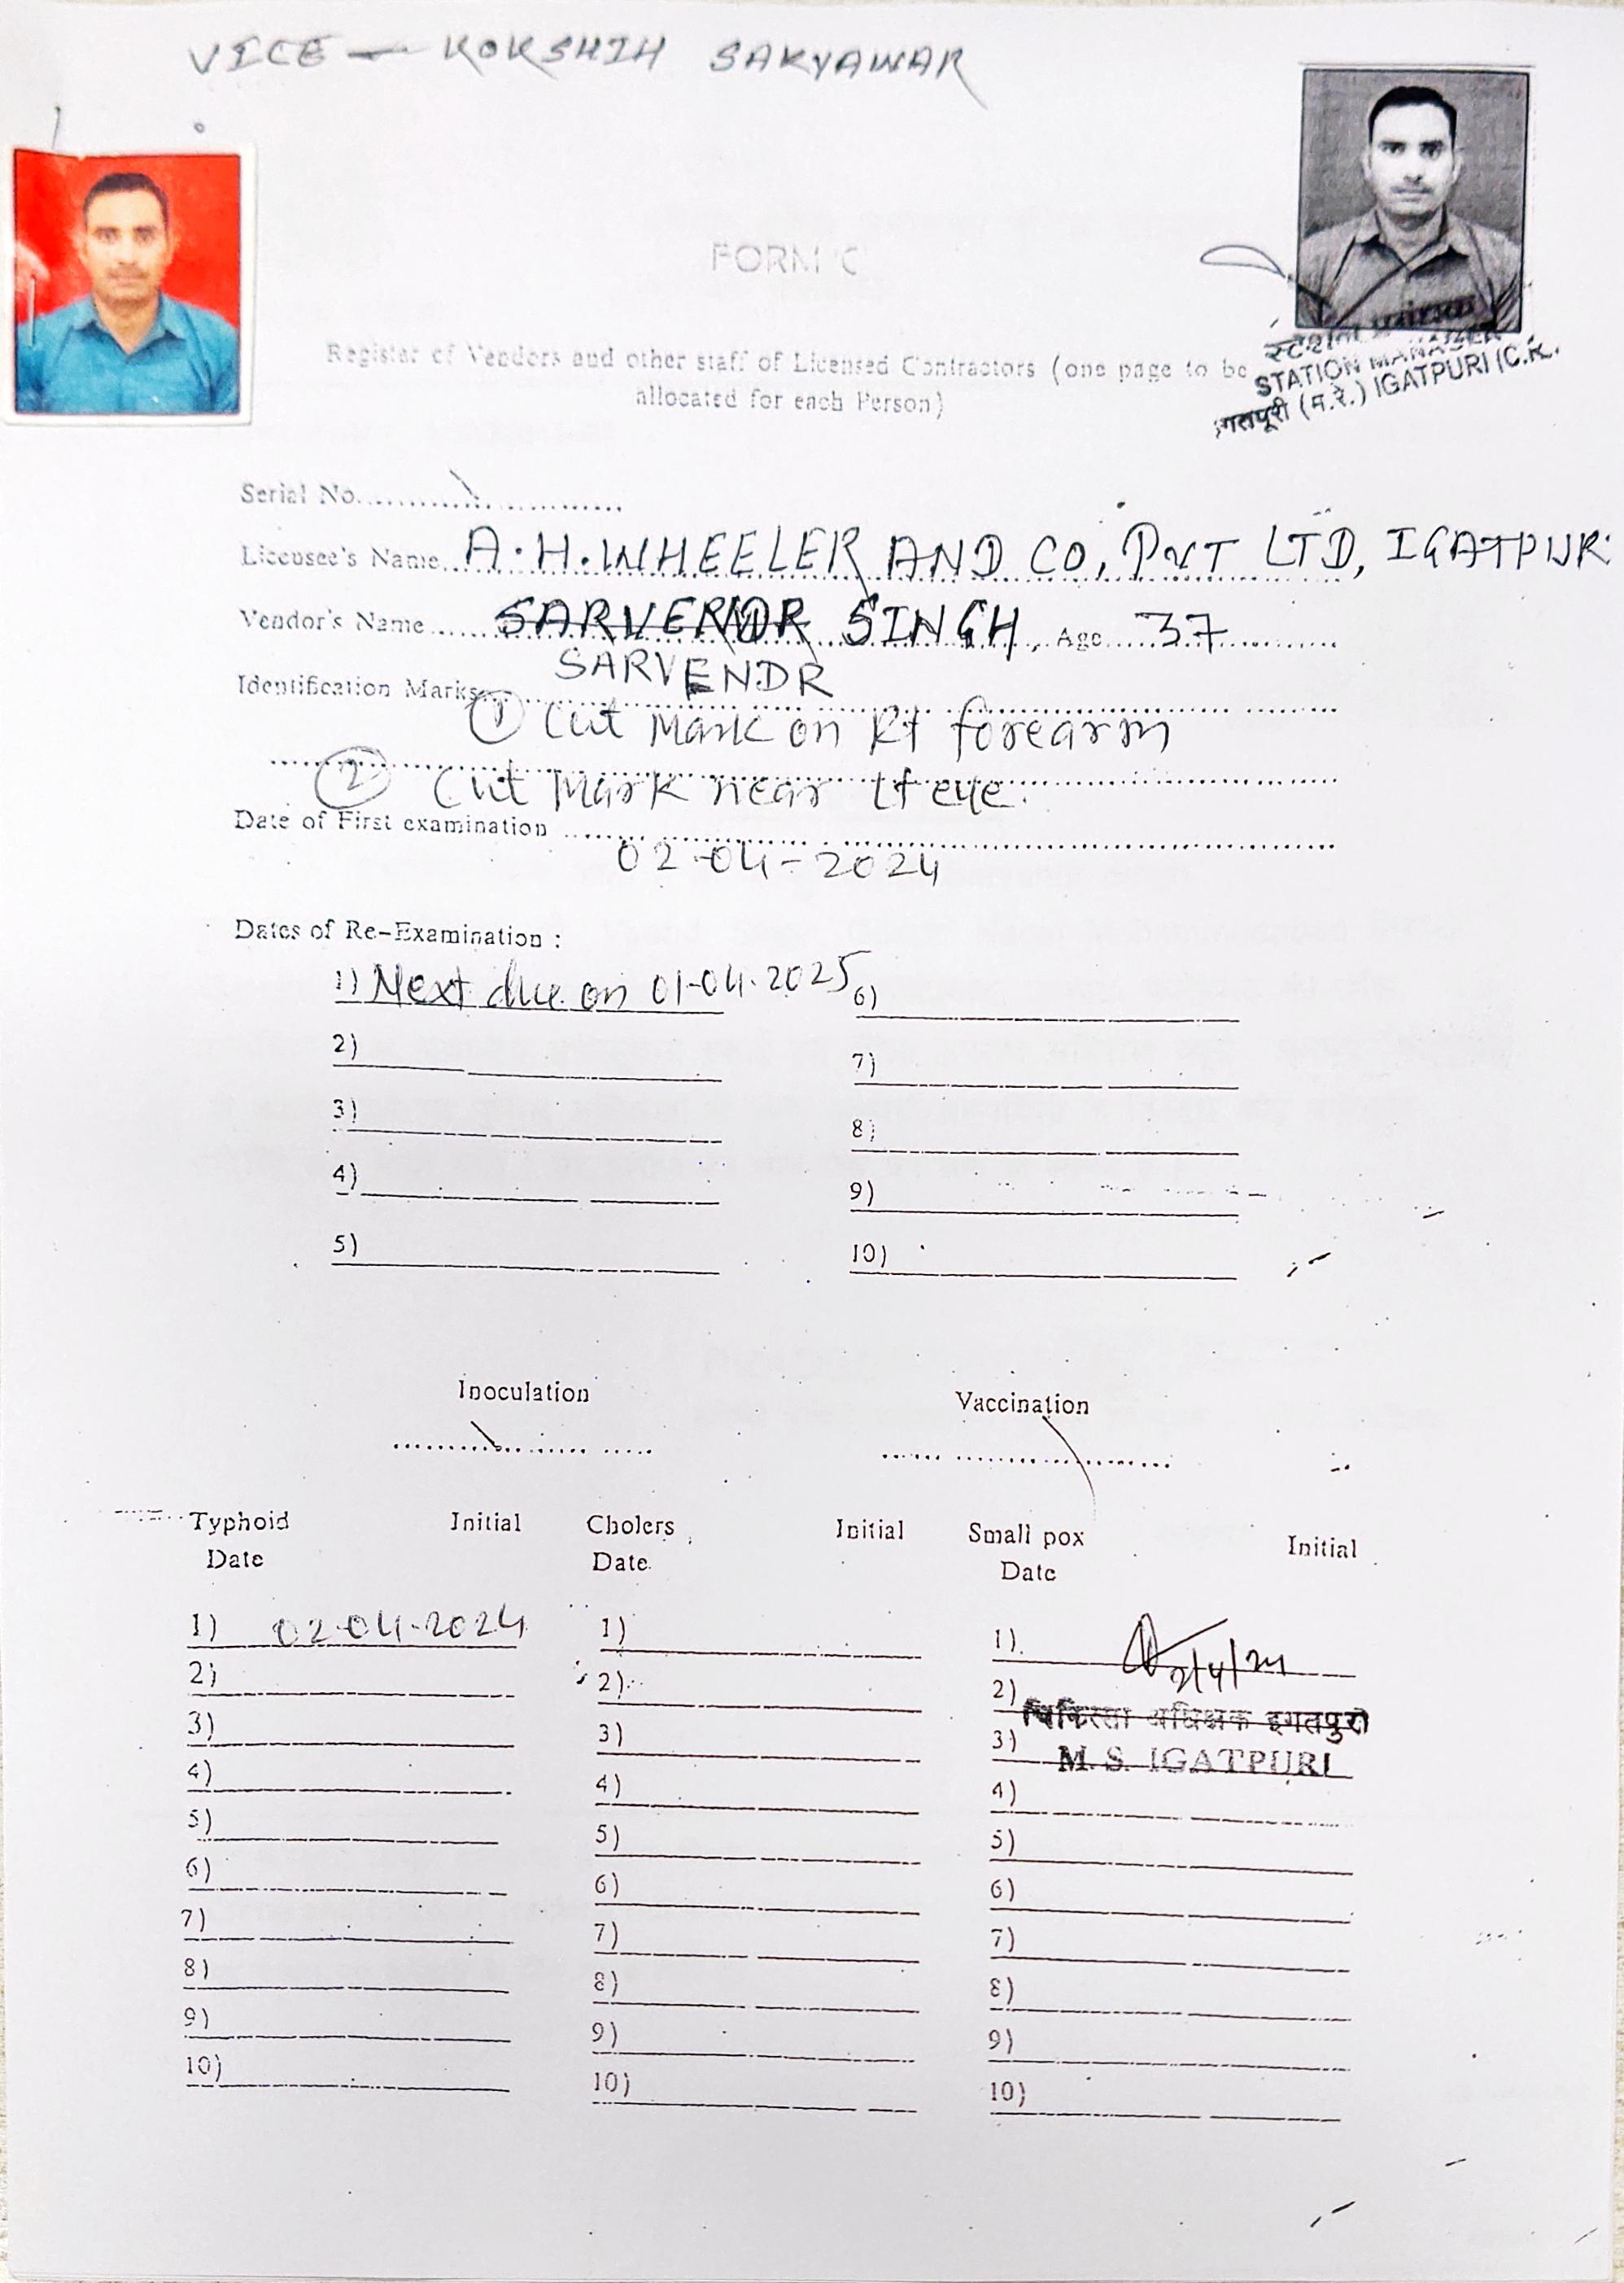 VICE — KOKSHIH SAKYAWAR
FORM 'C'
Register of Vendors and other staff of Licensed Contractors (one page to be
allocated for each Person)
STATION MANAGER
इगतपूरी (म.रे.) IGATPURI (C.R.
Serial No.
Licensee's Name A.H.WHEELER AND CO, PVT LTD, IGATPUR
Vendor's Name SINGH, Age 37
SARVENDR
Identification Marks
① Cut Mark on Rt forearm
② Cut Mark near Lt eye.
Date of First examination
02-04-2024
Dates of Re-Examination :
1) Next due on 01-04-2025 6)
2) 7)
3) 8)
4) 9)
5) 10)
Inoculation Vaccination
Typhoid Initial Cholers Initial Small pox Initial
Date Date Date
1) 02-04-2024 1) 1) 2/4/24
2) 2) 2)
चिकित्सा अधिक्षक इगतपुरी
3) 3) 3) M. S. IGATPURI
4) 4) 4)
5) 5) 5)
6) 6) 6)
7) 7) 7)
8) 8) 8)
9) 9) 9)
10) 10) 10)